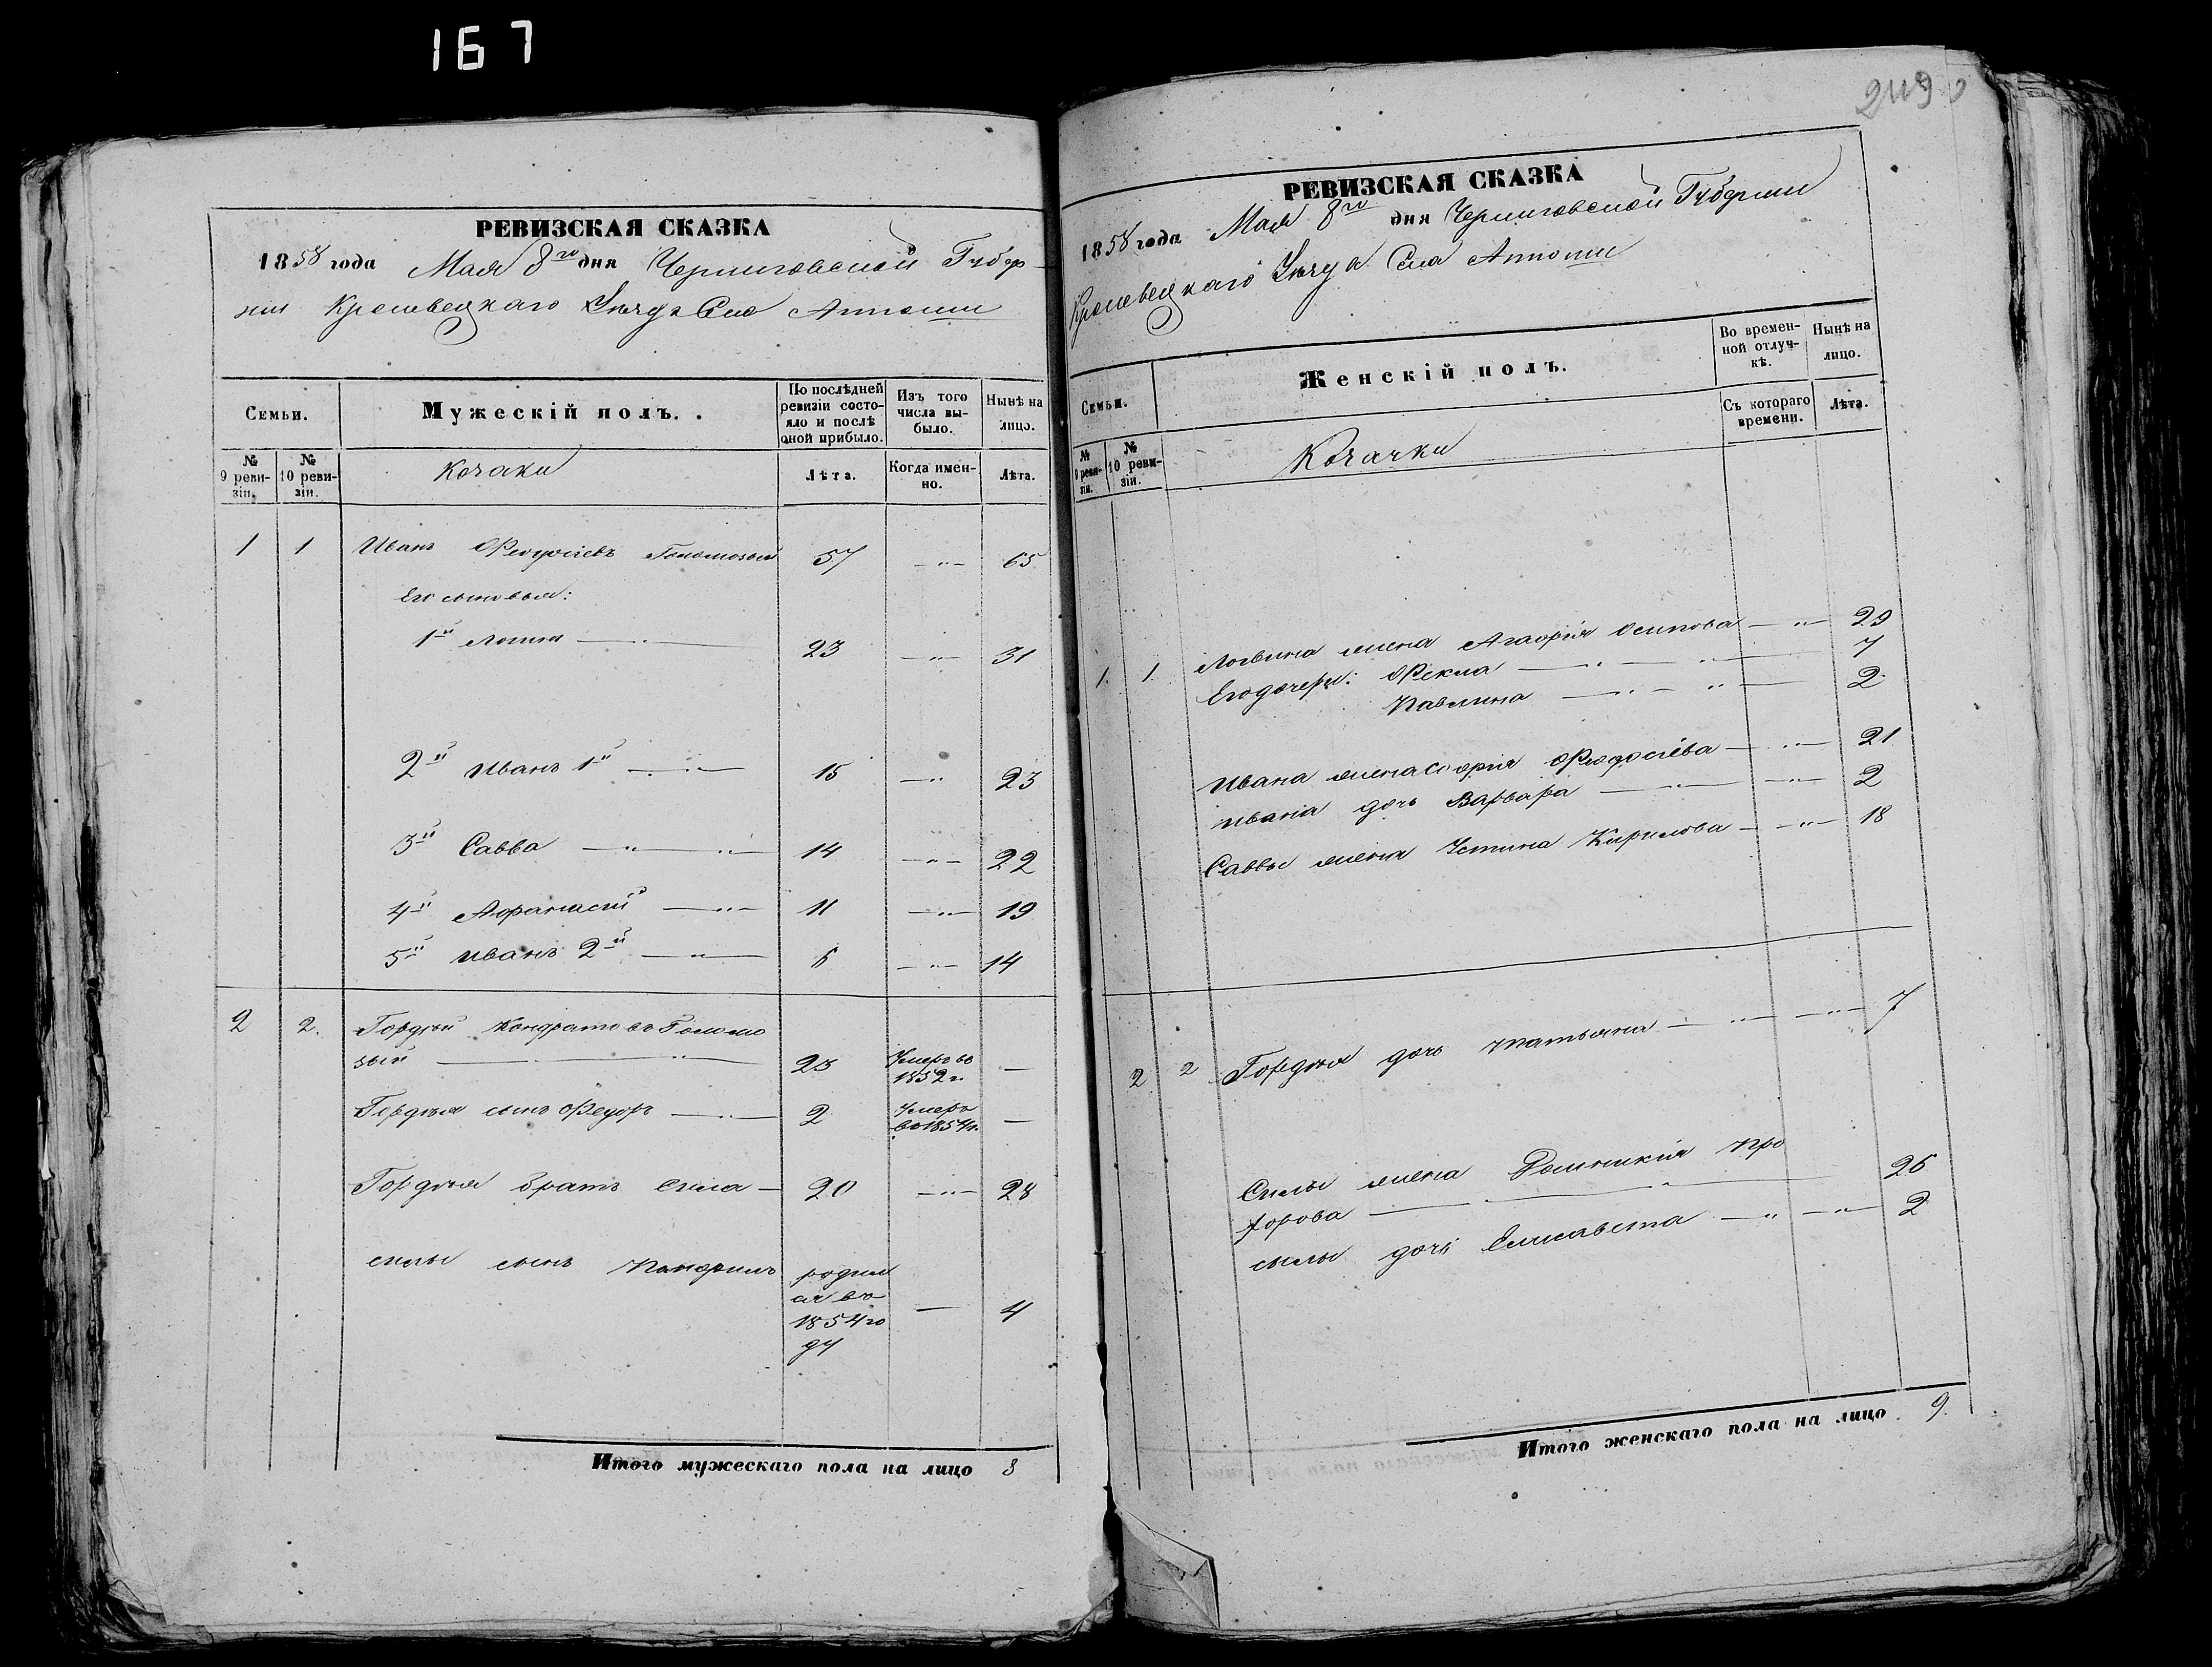 167
РЕВИЗСКАЯ СКАЗКА
1858 года Мая 8го дня Черниговской Губер-
нии Кролевецкаго Уѣзда Села
Семьи.
Мужескій полъ.
По послѣдней ревизіи состояло и послѣ оной прибыло.
Изъ того числа выбыло.
Нынѣ на лицо.
№ 9 ревизіи.
№ 10 ревизіи.
Козаки
Лѣта.
Когда именно.
Лѣта.
1 1 Иванъ Феодосіевъ Голомозый 57 —"— 65
Его сыновья:
1й 23 —"— 31
2й Иванъ 1й 15 —" 23
3й Савва —"— " 14 —"— 22
4й Афанасій —"— 11 —"— 19
5й Иванъ 2й —"— 6 —"— 14
2 2. Гордѣй Кондратовъ Голомо
зый 25 Умеръ въ 1852 г. —
Гордѣя сынъ Федоръ 2 Умеръ въ 1854 г. —
Гордѣя братъ Сила — 20 —"— 28
Силы сынъ Панфилъ родил
ся въ
1854 го
ду — 4
Итого мужескаго пола на лицо 8
249
РЕВИЗСКАЯ СКАЗКА
1858 года Мая 8го дня Черниговской Губерніи
Кролевецкаго Уѣзда Села
Семьи.
Женскій полъ.
Во временной отлучкѣ.
Нынѣ на лицо.
№ 9 ревизіи.
№ 10 ревизіи.
Козачки
Съ котораго времени.
Лѣта.
1. 1. Логвина жена Агафія Осипова —"— 29
Его дочери: Фекла 7
Павлина 2
Ивана жена Софія Феодосіева —"— 21
Ивана дочь Варвара —"— 2
Саввы жена Устина Кирилова —"— 18
2 2 Гордѣя дочь Татьяна —"— 7
Силы жена Домникія Про
хорова 26
Силы дочь Елисавета —"— 2
Итого женскаго пола на лицо 9.